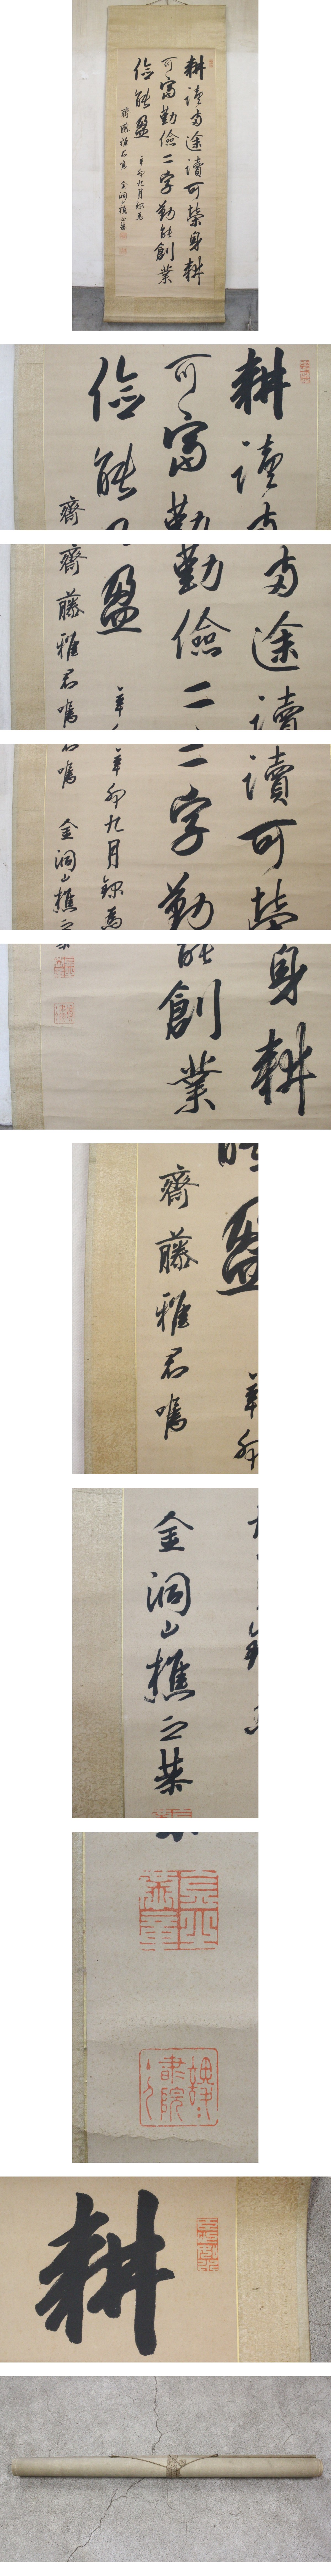 耕讀両途讀可榮身耕
可富勤儉二字勤能創業
儉能盈 辛卯九月録為
齋藤雅君嘱 金洞山樵之